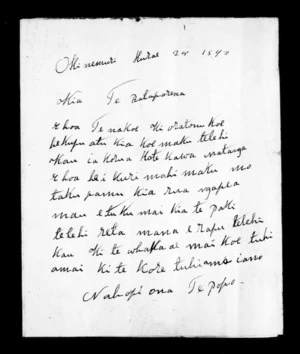 Ohinemuri Hurae 24 1890
Kia Te Ratuporena
E hoa Tenakoe
he kupu atu kia koe maku tetehi
Kau ia korua Kote Kawa matarga
E hoa he i kuri mahi maku mo
taku pamu kia rua mapea
mau e tuku mai kia te paki
tetehi reta mana e rapu tetehi
kau Ki te whakaae mai koe tuhi
amai ki te Kore tuhia mai ano
Na hopi ona Te popo